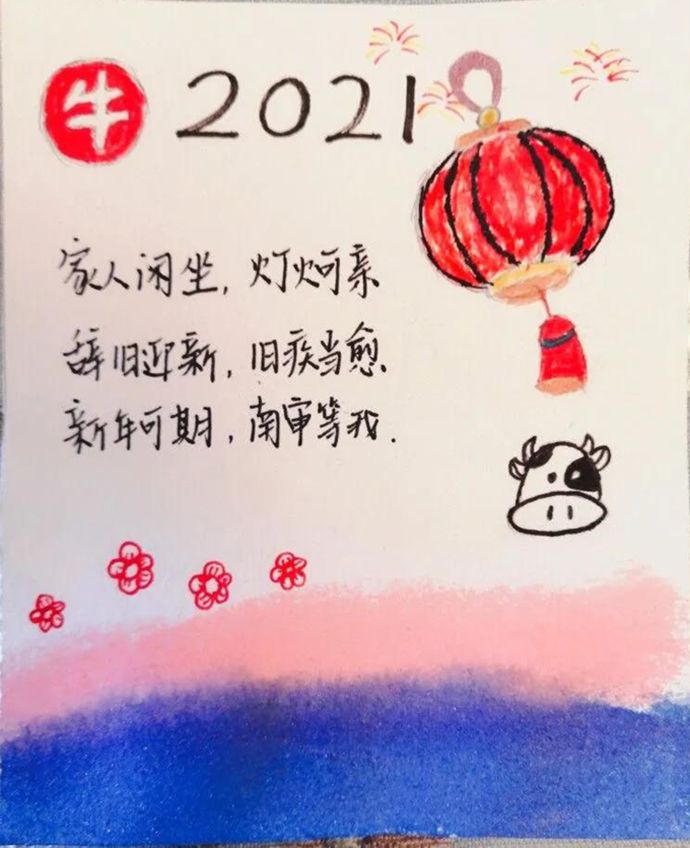 牛 2021
家人闲坐，灯火可亲
辞旧迎新，旧疾当愈
新年可期，南审等我.